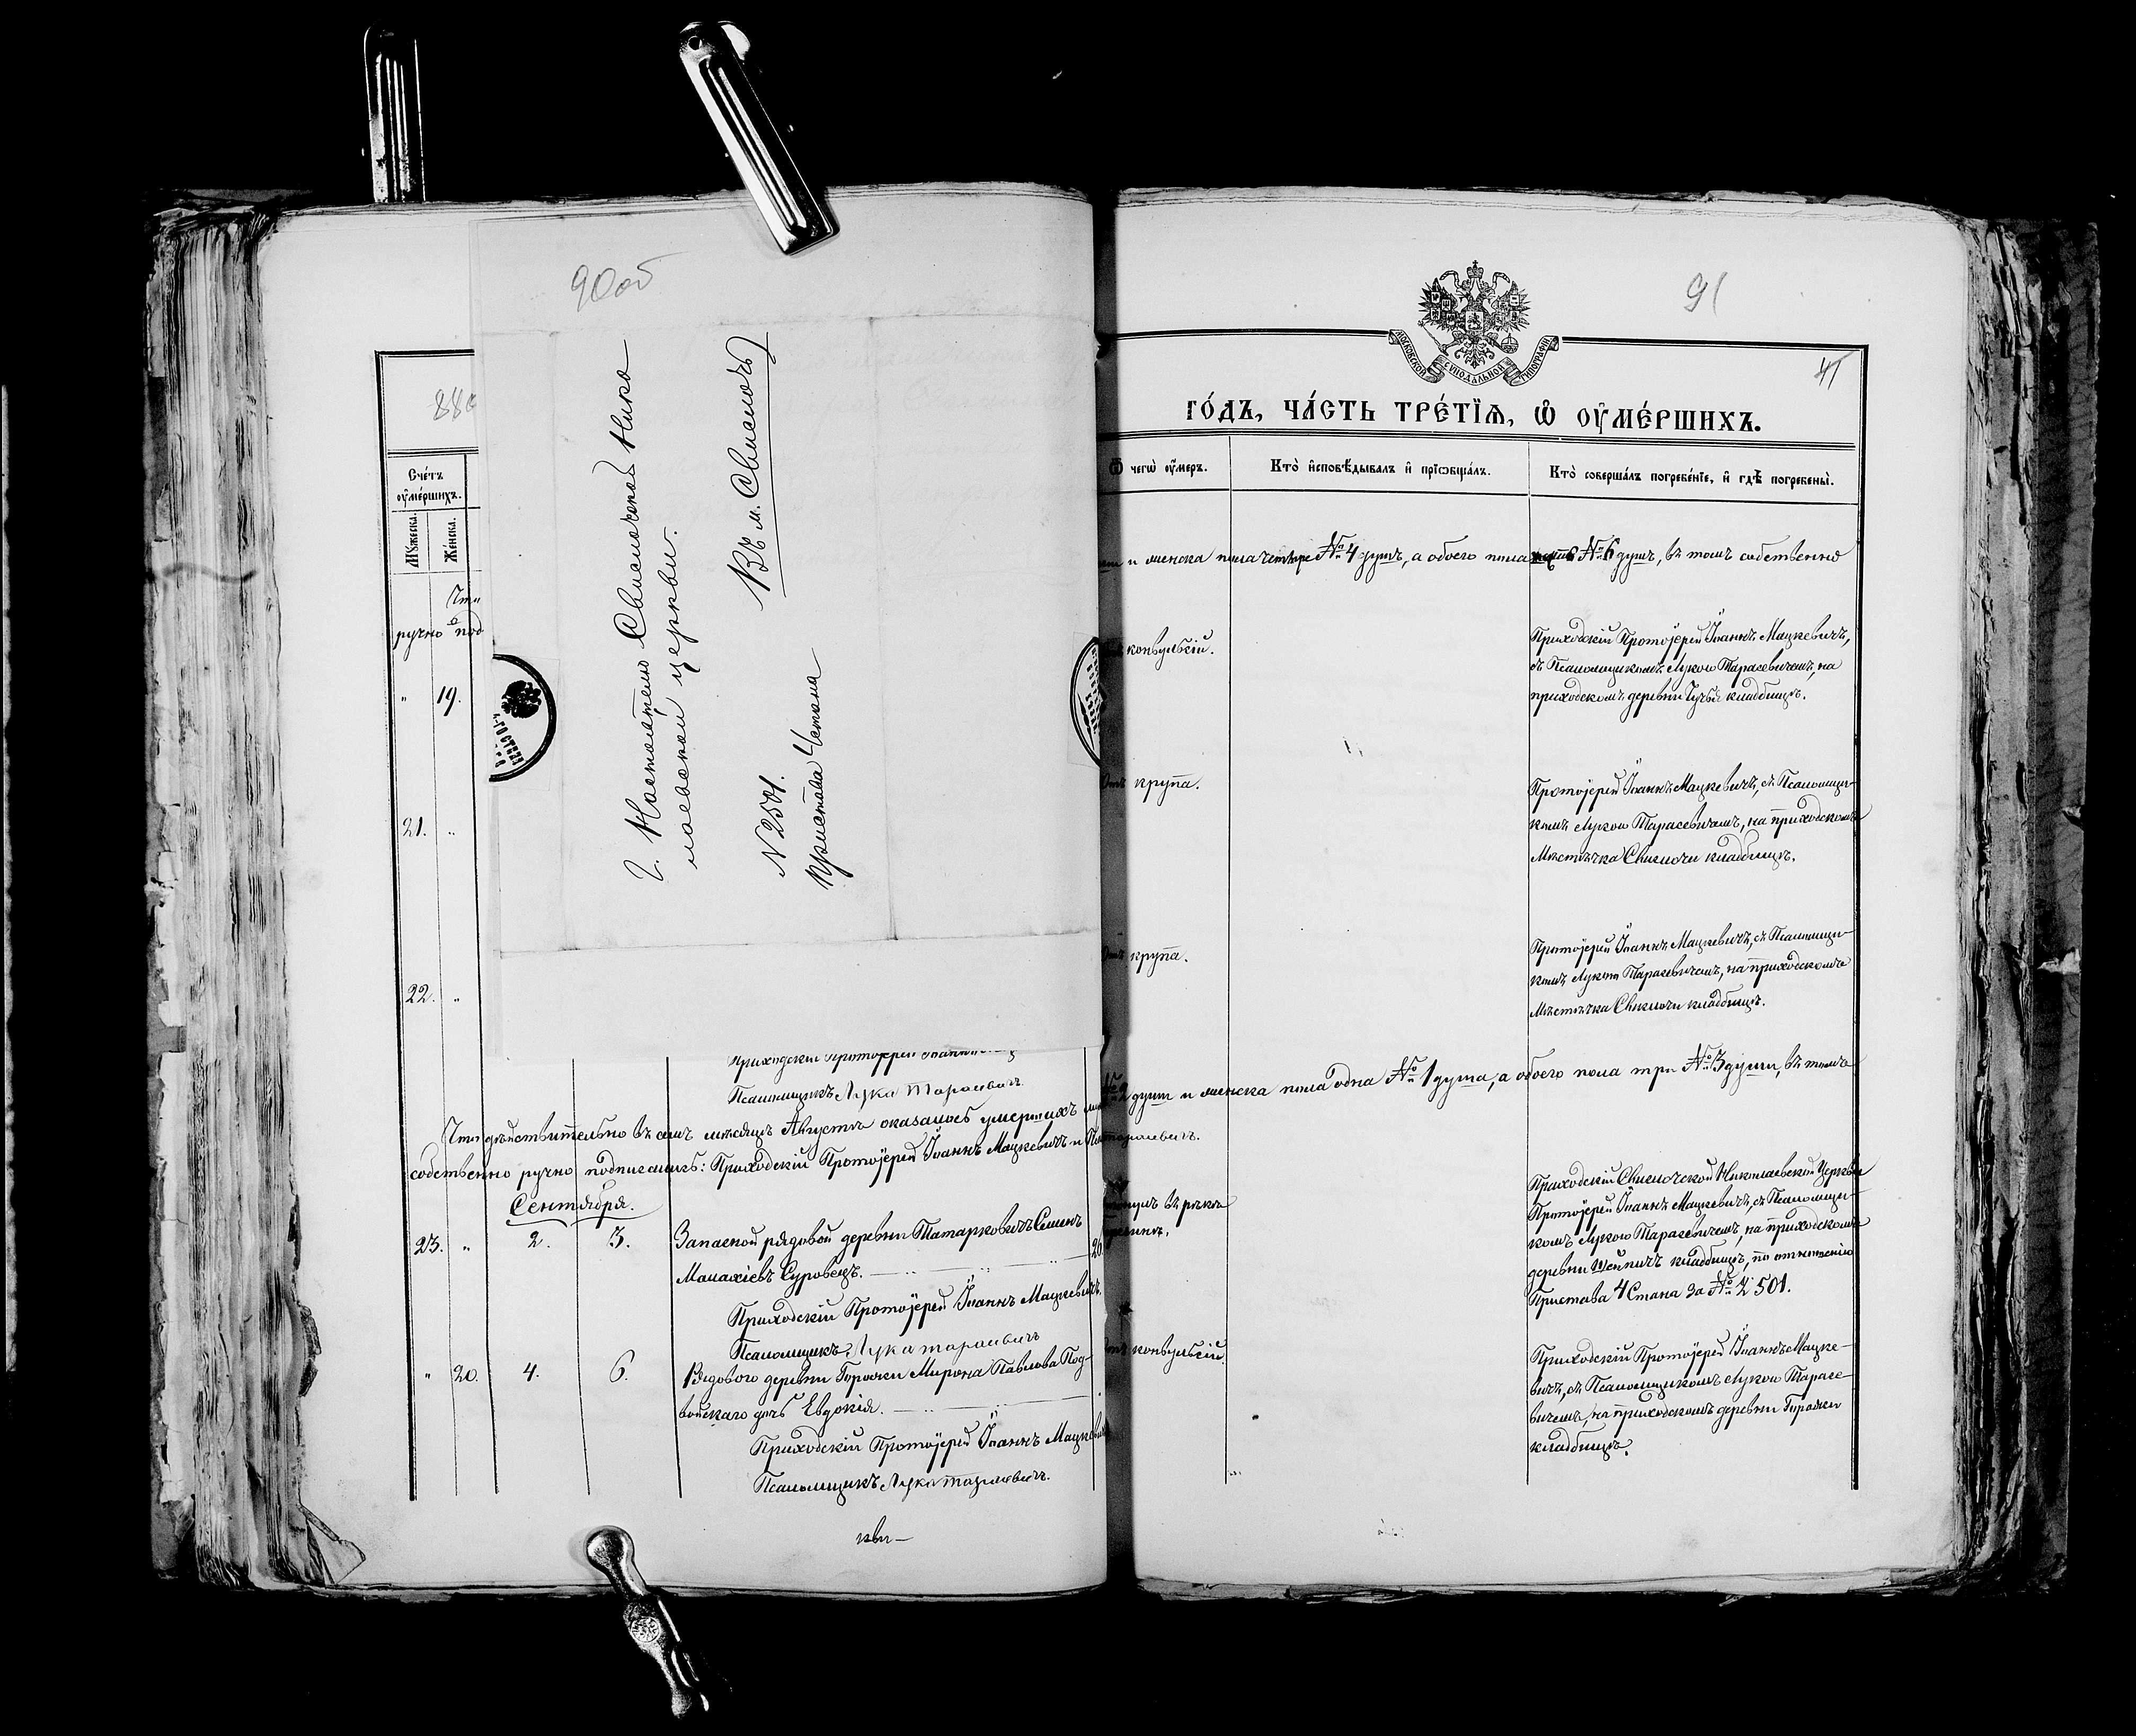 90об
Г. Настоятелю Свислочской Нико
лаевской церкви.
Въ м. Свислочь
N 2501.
Пристава 4 стана
88
Счетъ
оумершихъ.
Мужеска.
Женска.
ручно под
" 19.
21. "
22. "
Приходскій Протоіерей
Псаломщикъ Лука Тарасевичъ
Что дѣйствительно въ семъ мѣсяцѣ Августѣ оказалось умершихъ
собственно ручно подписались: Приходскій Протоіерей Іоаннъ Мацкевичъ и
Сентября.
23. " 2. 3. Запасной рядовой деревни Татарковичъ Семенъ
Малахіевъ Суровецъ. 26.
Приходскій Протоіерей Іоаннъ Мацкевичъ.
Псаломщикъ Лука Тарасевичъ
" 20. 4. 6. Рядового деревни Горожи Мирона Павлова Под-
войскаго дочь Евдокія.
Приходскій Протоіерей Іоаннъ Мацкевичъ
Псаломщикъ Лука Тарасевичъ.
91
41
МОСКОВСКОЙ СѴНОДАЛЬНОЙ ТИПОГРАФІИ
ГО́ДЪ, ЧА́СТЬ ТРЕ́ТІѦ, Ѡ҆ ОУ҆МЕ́РШИХЪ.
Ѿ чегѡ̀ оу҆́меръ.
Кто̀ и҆сповѣ́дывалъ и҆ прїѡбща́лъ.
Кто̀ соверша́лъ погребе́нїе, и҆ гдѣ̀ погребены̀.
и женска пола четыре № 4 душъ, а обоего пола № 6 душъ, въ томъ собственно
конвульсій.
Приходскій Протоіерей Іоаннъ Мацкевичъ,
съ Псаломщикомъ Лукою Тарасевичемъ, на
приходскомъ деревни кладбищѣ.
крупа.
Протоіерей Іоаннъ Мацкевичъ, съ Псаломщи-
комъ Лукою Тарасевичемъ, на приходскомъ
Мѣстечка Свислочи кладбищѣ.
крупа.
Протоіерей Іоаннъ Мацкевичъ, съ Псаломщи-
комъ Лукою Тарасевичемъ, на приходскомъ
Мѣстечка Свислочи кладбищѣ.
№ 2 душъ и женска пола одна № 1 душа, а обоего пола три № 3 души, въ томъ
Тарасевичъ.
въ рѣкѣ
Приходскій Свислочской Николаевской Церкви
Протоіерей Іоаннъ Мацкевичъ, съ Псаломщи-
комъ Лукою Тарасевичемъ, на приходскомъ
деревни кладбищѣ, по отношенію
Пристава 4 Стана за № 2501.
конвульсій.
Приходскій Протоіерей Іоаннъ Мацке-
вичъ, съ Псаломщикомъ Лукою Тарасе-
вичемъ, на приходскомъ деревни Горожи
кладбищѣ.